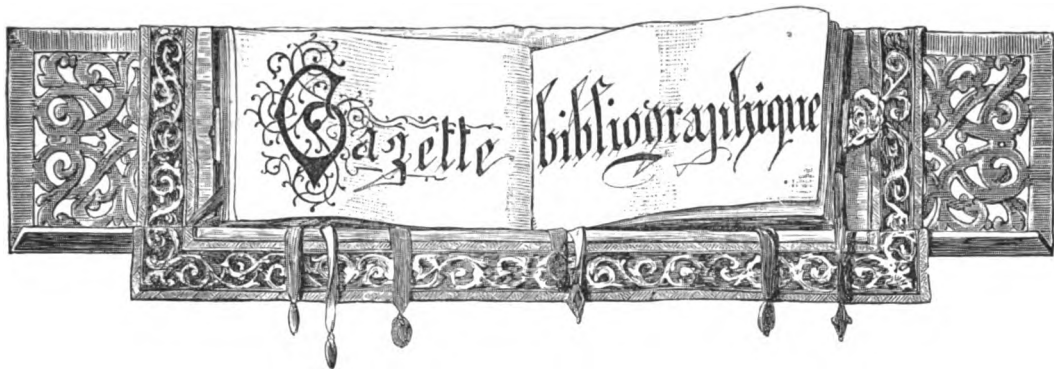 Gazette bibliographique